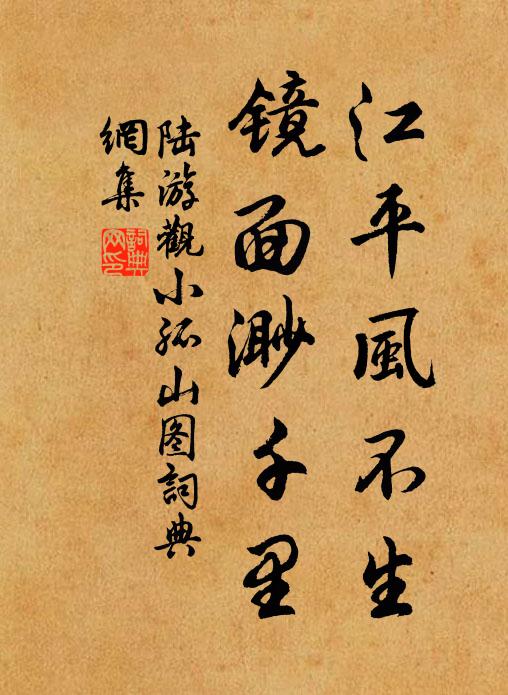 江平風不生
镜面渺千里
陆游觀小孤山图詞典
網集
詞典
网印